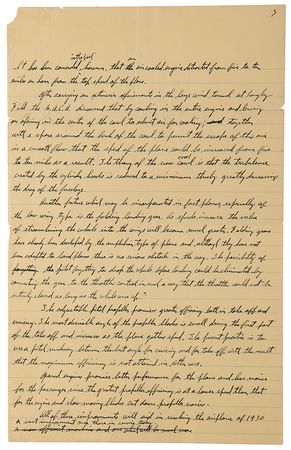 3
in the past
It has been considered, however, that an air cooled engine detracted from five to ten
miles an hour from the top speed of the plane.
After carrying on extensive experiments in the large wind tunnel at Langley
Field the N.A.C.A. discovered that by cowling in the entire engine and leaving
an opening in the center of the cowl to admit air for cooling, together
with a space around the back of the cowl to permit the escape of this air
in a smooth flow that the speed of the plane could be increased from five
to ten miles as a result. The theory of the new cowl is that the turbulence
created by the cylinder heads is reduced to a minimum thereby greatly decreasing
the drag of the fuselage.
Another feature which may be incorporated in fast planes, especially of
the low wing type is the folding landing gear. As speeds increase the value
of streamlining the wheels into the wings will become much greater. Folding gears
have already been developed by the amphibian type of plane and, although they have not
been adapted to land planes there is no serious obstacle in the way. The possibility of
the pilot forgetting to drop the wheels before landing could be eliminated by
connecting the gear to the throttle control in such a way that the throttle could not be
entirely closed as long as the wheels were up.
The adjustable pitch propeller promises greater efficiency both in take off and
cruising. The most desirable angle of the propeller blades is small during the first part
of the take off and increases as the plane gathers speed. The present practice is to
use a pitch midway between the best angle for cruising and for take off with the result
that the maximum efficiency is not attained in either case.
Geared engines promise better performance for the plane and less noise
for the passenger since the greatest propeller efficiency is at a lower speed than that
for the engine and slow moving blades cut down propeller noise.
All of these improvements will aid in making the airplane of 1930
a vast improvement over those in service today